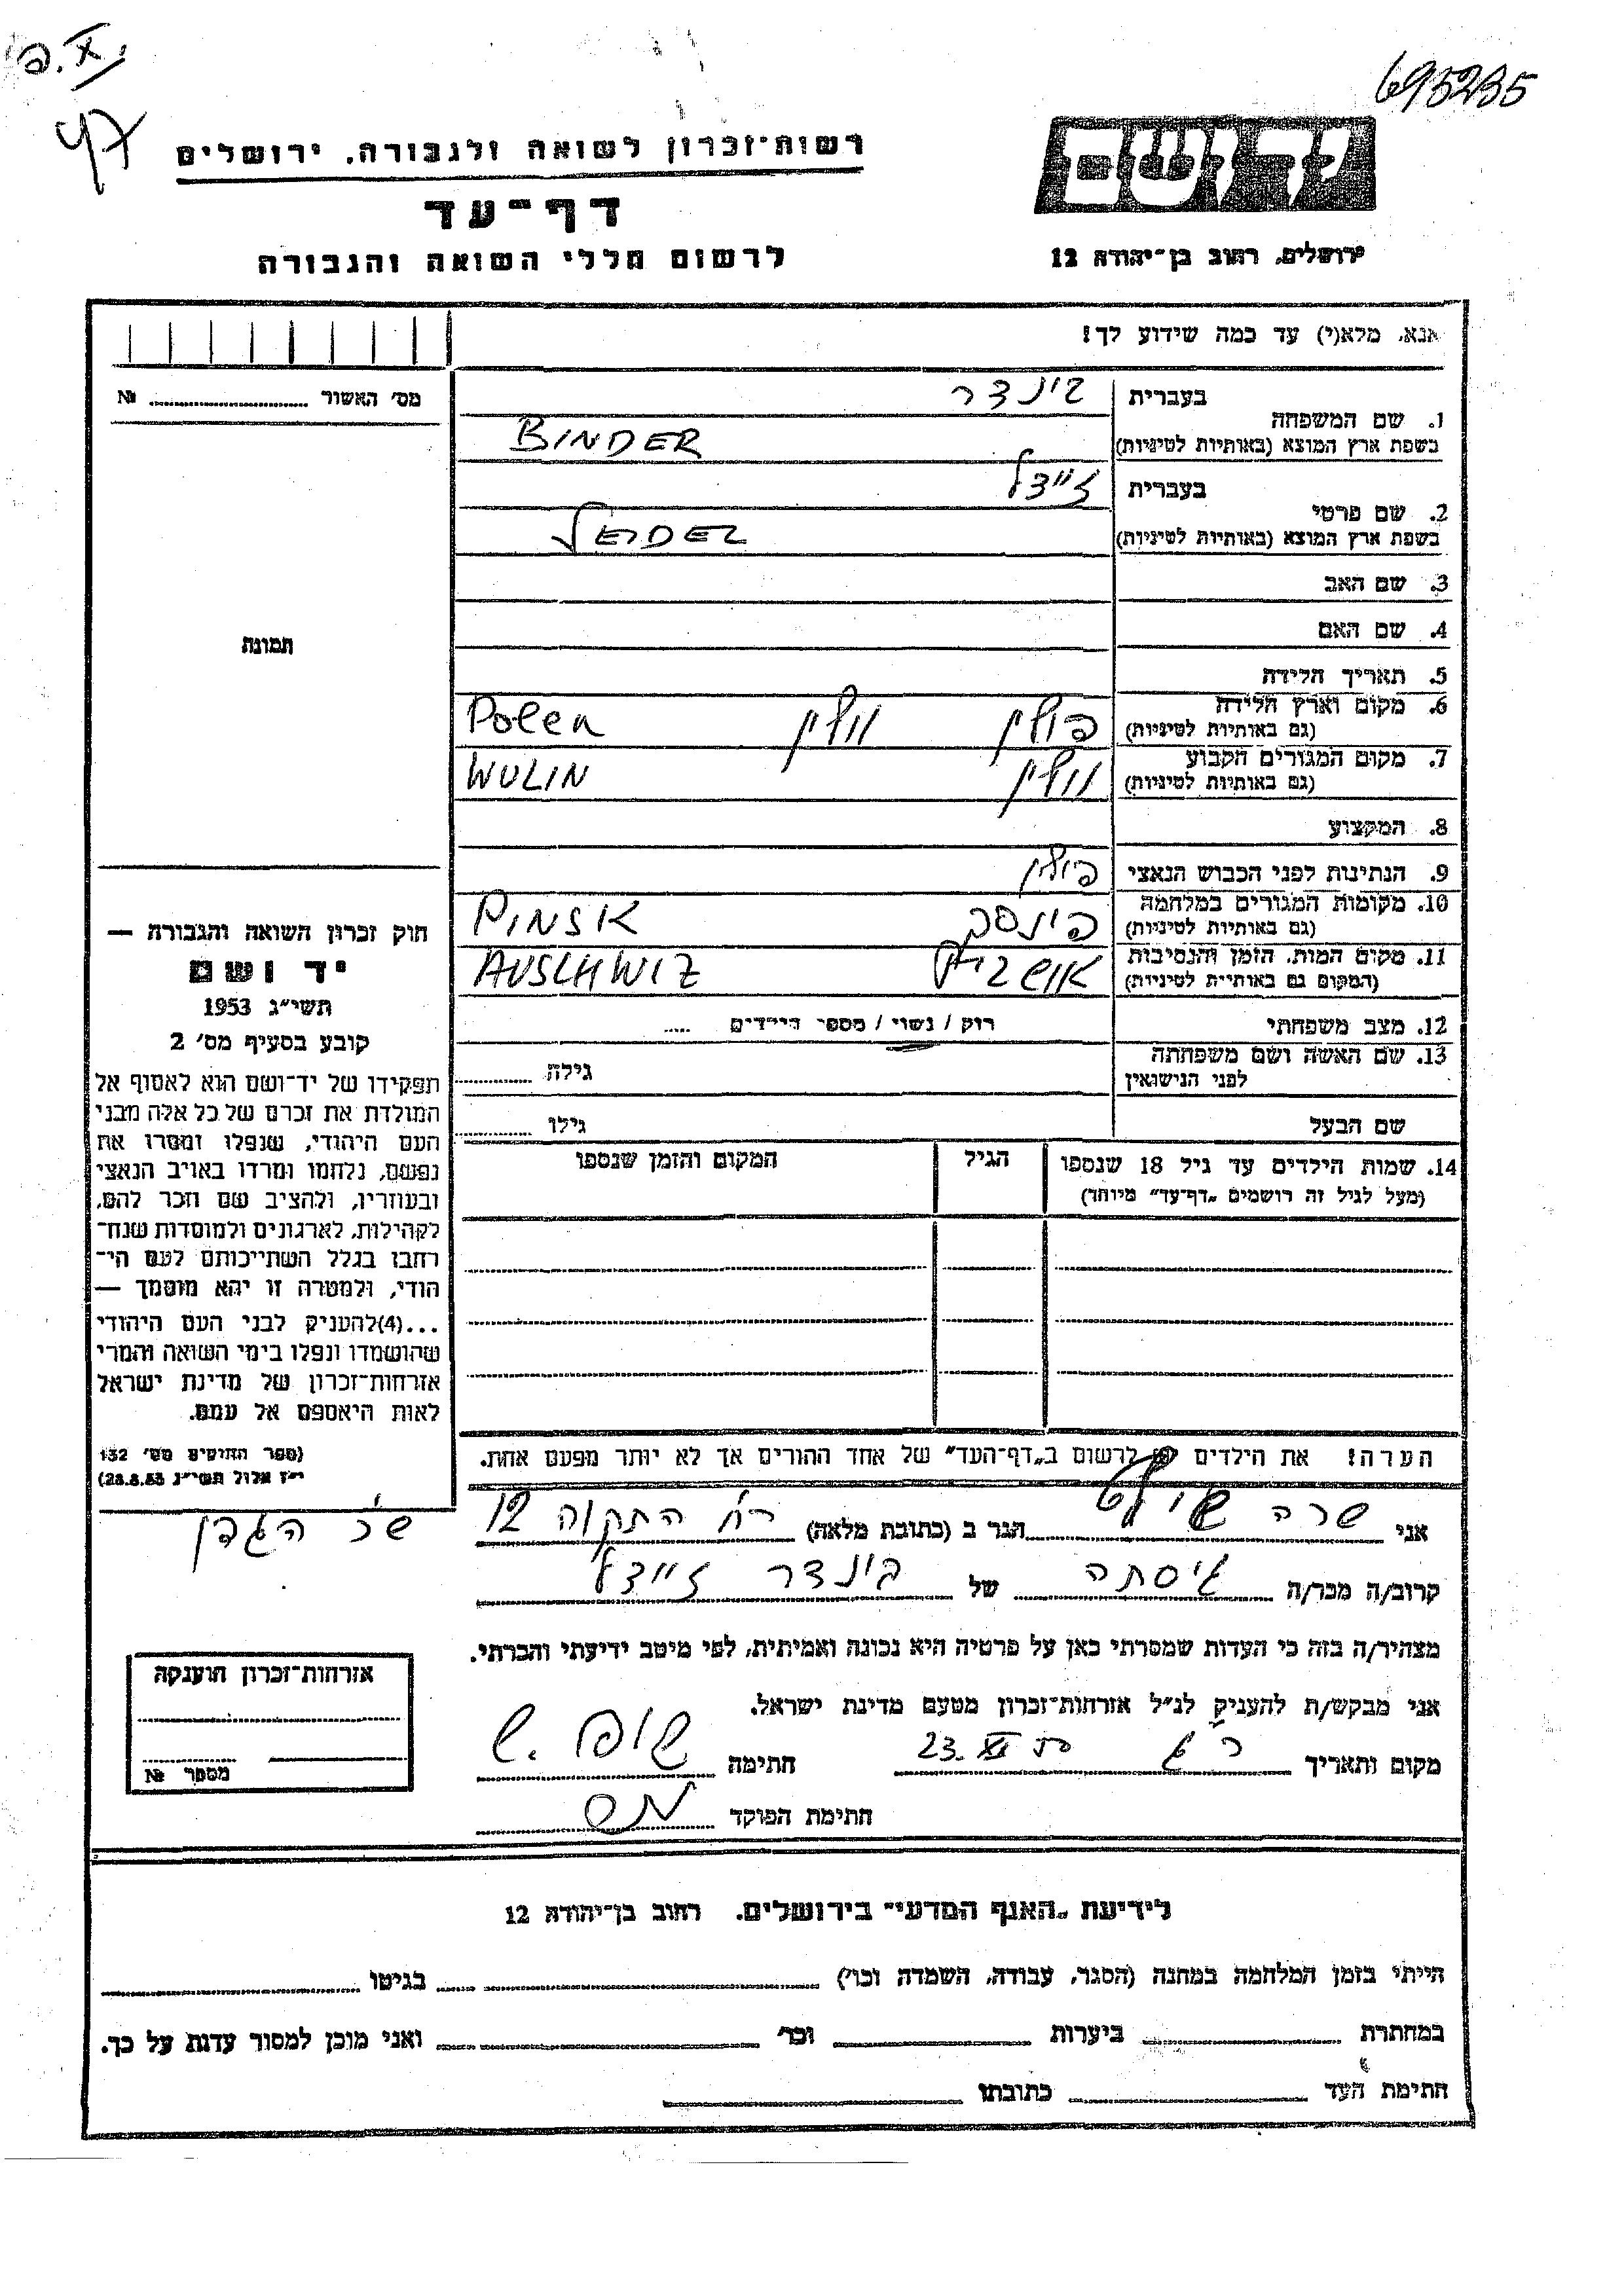 695235
רשות-זכרון לשואה ולגבורה, ירושלים
דף-עד
לרשום חללי השואה והגבורה
יד ושם
ירושלים, רחוב בן-יהודה 12
אנא, מלא(י) עד כמה שידוע לך!
מס' האשור № ........
תמונה
1. שם המשפחה בעברית בינדר
בשפת ארץ המוצא (באותיות לטיניות) BINDER
2. שם פרטי בעברית זיידל
בשפת ארץ המוצא (באותיות לטיניות)
3. שם האב
4. שם האם
5. תאריך הלידה
6. מקום וארץ הלידה (גם באותיות לטיניות) פולין וולין Polen
7. מקום המגורים הקבוע (גם באותיות לטיניות) וולין WULIN
8. המקצוע
9. הנתינות לפני הכבוש הנאצי פולין
10. מקומות המגורים במלחמה (גם באותיות לטיניות) פינסק PINSK
11. מקום המות, הזמן והנסיבות (המקום גם באותיות לטיניות) אושביץ AUSCHWIZ
12. מצב משפחתי רוק / נשוי / מספר הילדים .....
13. שם האשה ושם משפחתה לפני הנישואין גילה ........
שם הבעל גילו ........
14. שמות הילדים עד גיל 18 שנספו הגיל המקום והזמן שנספו
(מעל לגיל זה רושמים „דף-עד” מיוחד)
הערה! את הילדים יש לרשום ב„דף-העד” של אחד ההורים אך לא יותר מפעם אחת.
חוק זכרון השואה והגבורה —
יד ושם
תשי"ג 1953
קובע בסעיף מס' 2
תפקידו של יד-ושם הוא לאסוף אל
המולדת את זכרם של כל אלה מבני
העם היהודי, שנפלו ומסרו את
נפשם, נלחמו ומרדו באויב הנאצי
ובעוזריו, ולהציב שם וזכר להם,
לקהילות, לארגונים ולמוסדות שנח-
רחבו בגלל השתייכותם לעם הי-
הודי, ולמטרה זו יהא מוסמך —
...(4)להעניק לבני העם היהודי
שהושמדו ונפלו בימי השואה והמרי
אזרחות-זכרון של מדינת ישראל
לאות היאספם אל עמם.
(ספר החוקים מס' 132
י"ז אלול תשי"ג 28.8.53)
אני שרה הגר ב (כתובת מלאה) רח' התקוה 12
קרוב/ה מכר/ה גיסתה של בינדר זיידל
מצהיר/ה בזה כי העדות שמסרתי כאן על פרטיה היא נכונה ואמיתית, לפי מיטב ידיעתי והכרתי.
אני מבקש/ת להעניק לנ"ל אזרחות-זכרון מטעם מדינת ישראל.
מקום ותאריך 23.XI חתימה
חתימת הפוקד
אזרחות-זכרון הוענקה
מספר №
לידיעת „האגף המדעי” בירושלים, רחוב בן-יהודה 12
הייתי בזמן המלחמה במחנה (הסגר, עבודה, השמדה וכו') ........ בגיטו ........
במחתרת ........ ביערות ........ וכו' ........ ואני מוכן למסור עדות על כך.
חתימת העד ........ כתובתו ........